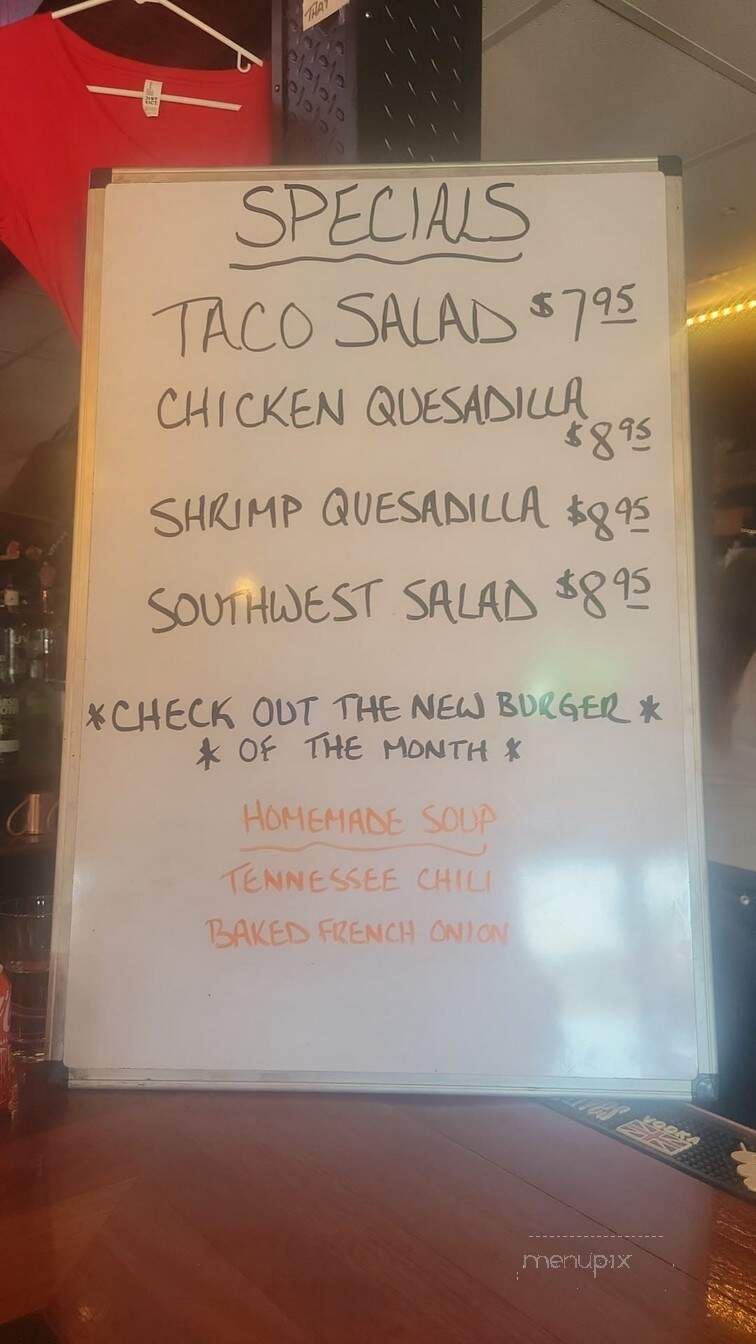 THAT
SPECIALS
TACO SALAD $7.95
CHICKEN QUESADILLA
$8.95
SHRIMP QUESADILLA $8.95
SOUTHWEST SALAD $8.95
*CHECK OUT THE NEW BURGER *
* OF THE MONTH *
HOMEMADE SOUP
TENNESSEE CHILI
BAKED FRENCH ONION
VODKA
menupix